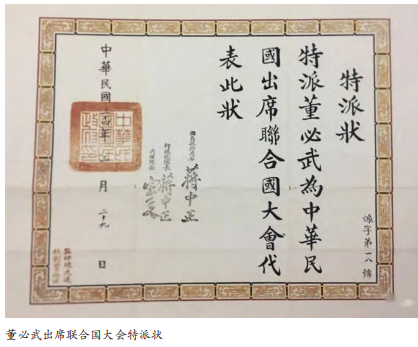 特派狀
特派董必武為中華民
國出席聯合國大會代
表此狀
國民政府主席 蔣中正
行政院院長 蔣中正
中華民國三十四年三月二十九日
派字第一八號
董必武出席联合国大会特派状